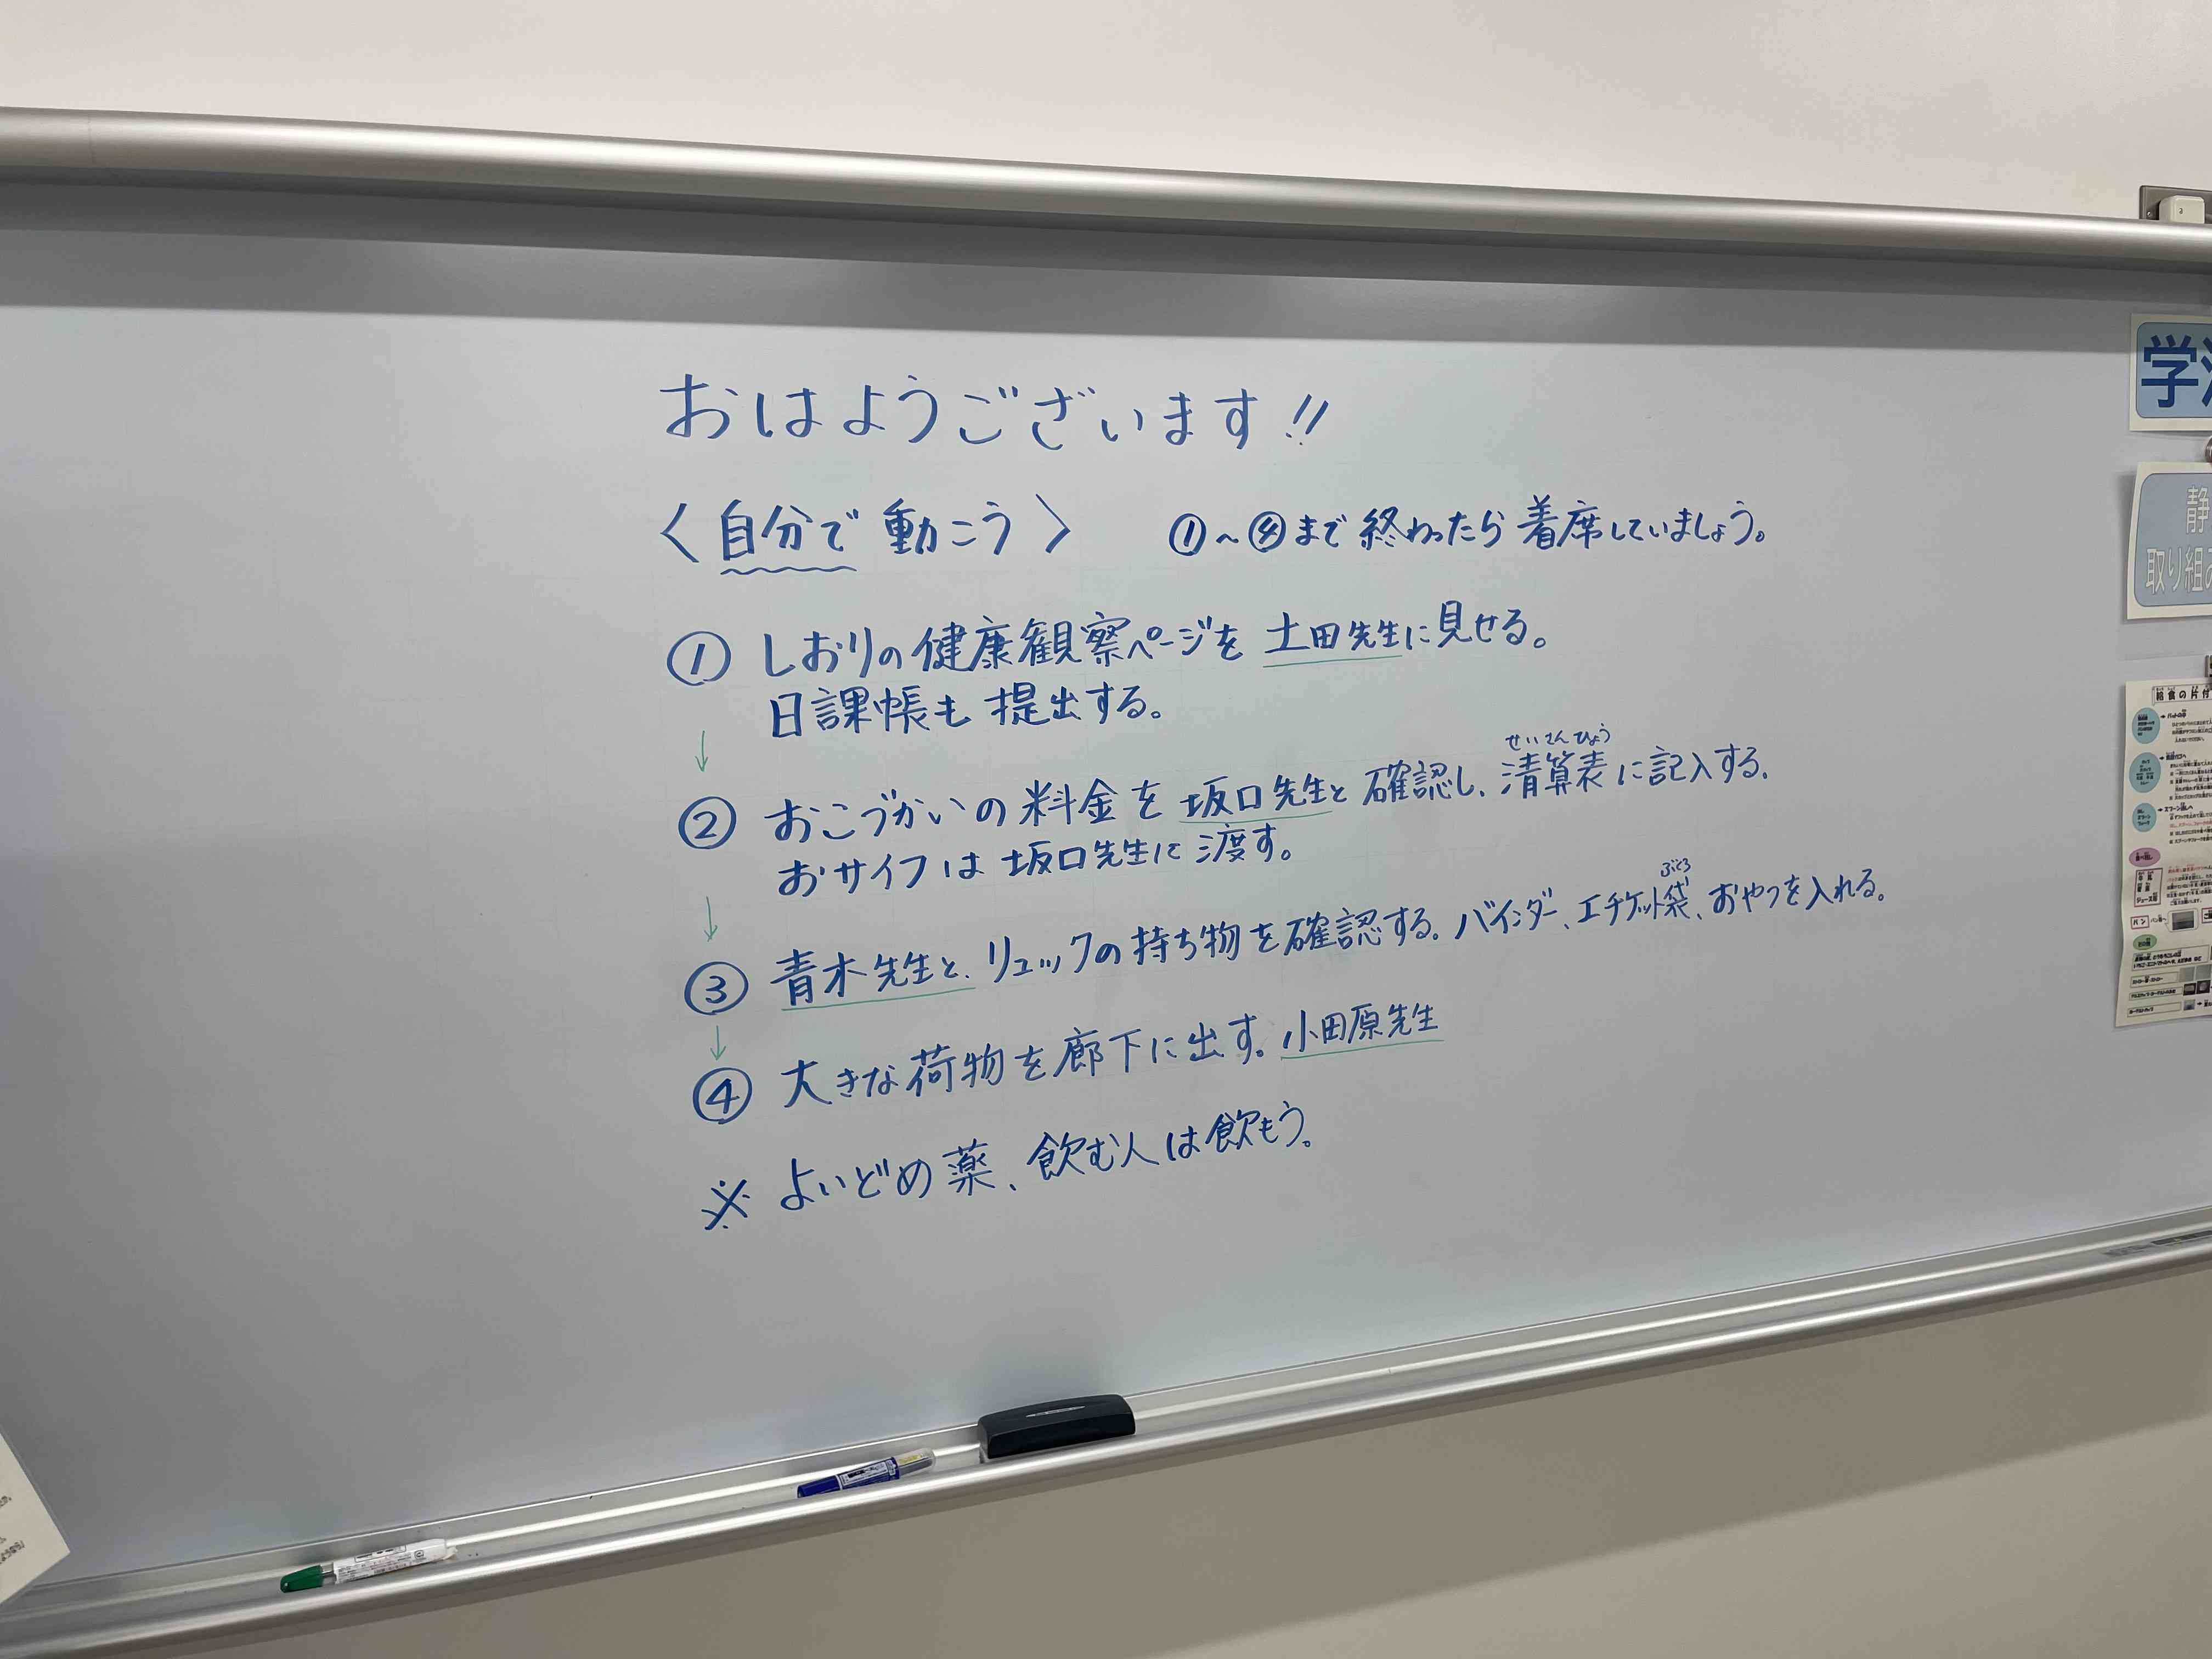 おはようございます!!
〈自分で動こう〉 ①〜④まで終わったら着席していましょう。
① しおりの健康観察ページを土田先生に見せる。
日課帳も提出する。
↓
せいさんひょう
② おこづかいの料金を坂口先生と確認し、清算表に記入する。
おサイフは坂口先生に渡す。
↓
ぶくろ
③ 青木先生と、リュックの持ち物を確認する。バインダー、エチケット袋、おやつを入れる。
↓
④ 大きな荷物を廊下に出す。小田原先生
※ よいどめ薬、飲む人は飲もう。
学
静
取り組み
給食の片付